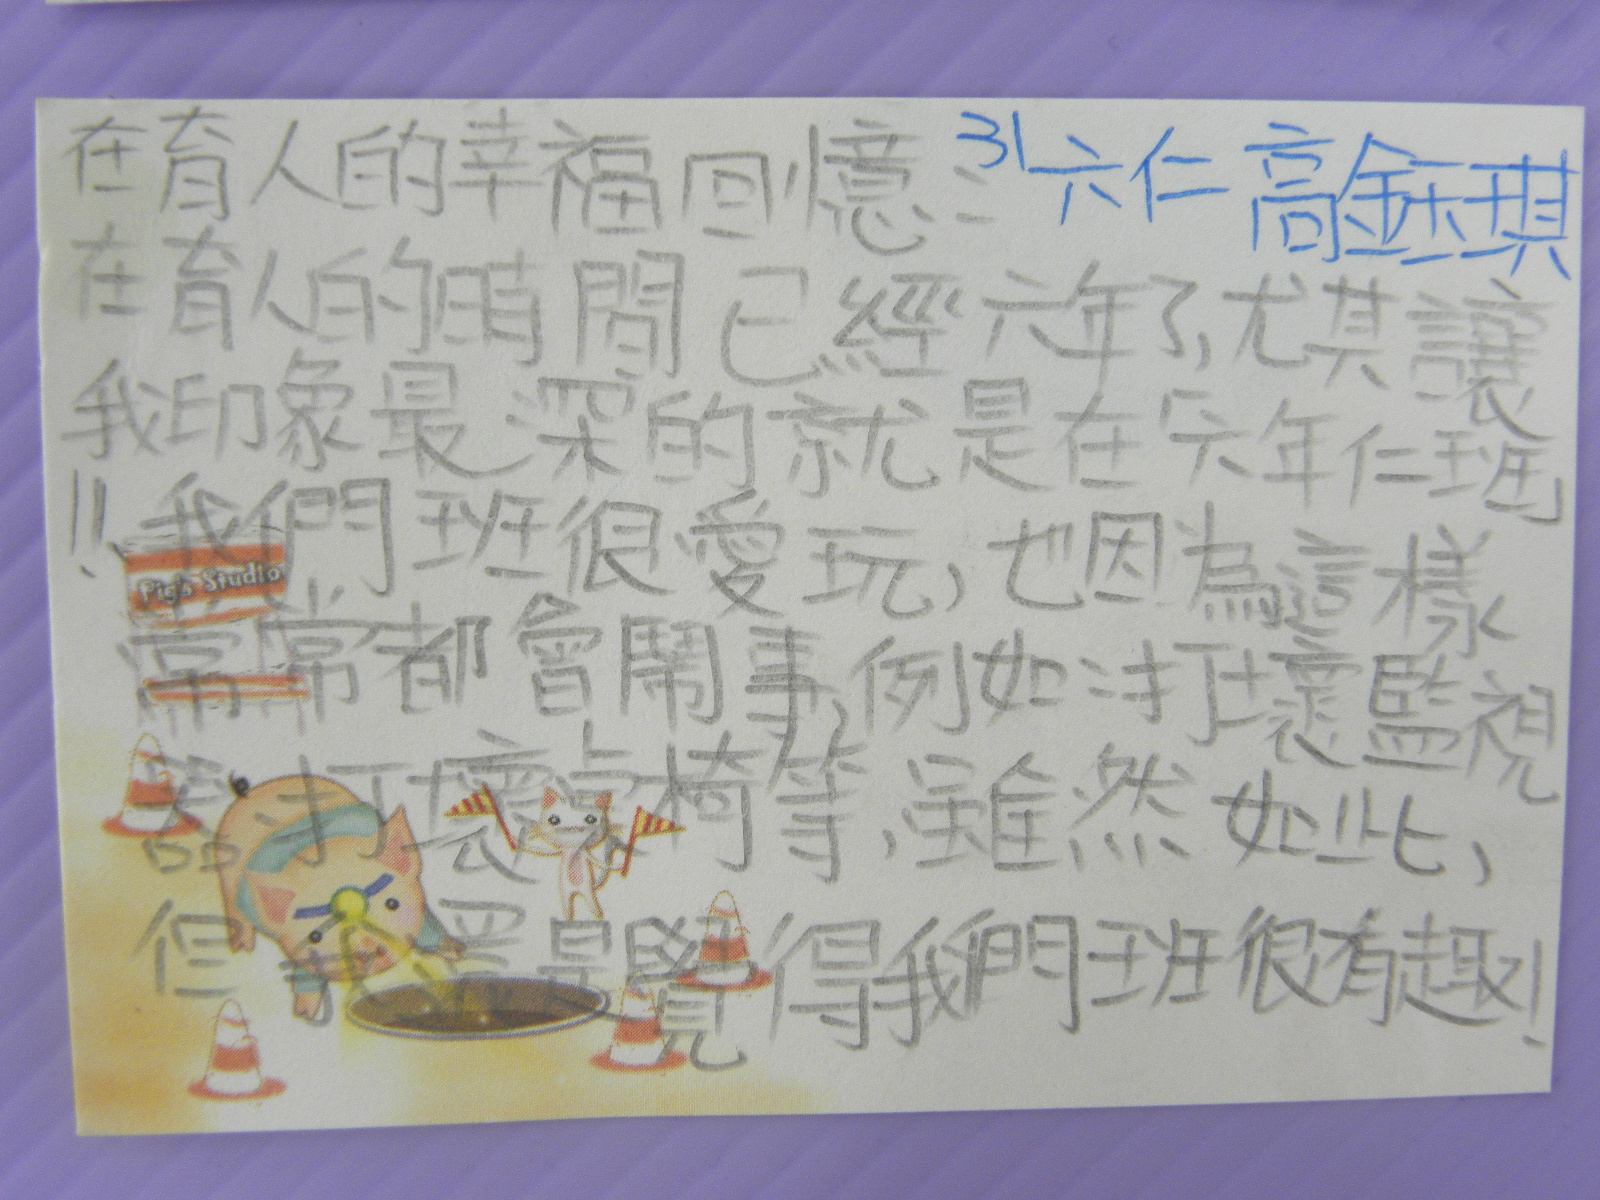 在育人的幸福回憶： 31 六仁 高鈺琪
在育人的時間已經六年了，尤其讓
我印象最深的就是在「六年仁班」
!! 我們班很愛玩，也因為這樣
Pig's Studio
常常都會鬧事，例如：打壞監視
器、打壞桌椅等，雖然如此，
但我還是覺得我們班很有趣!